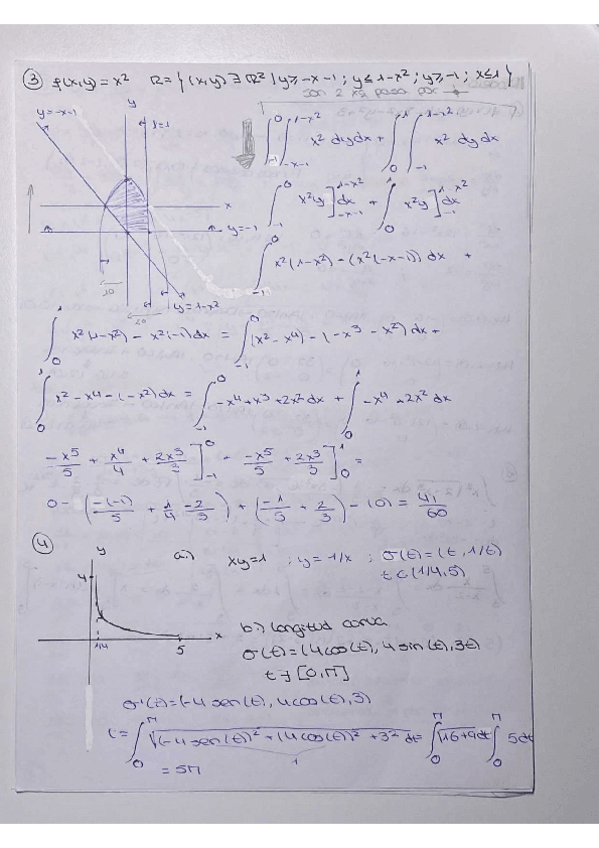 ③ f(x,y) = x² R = { (x,y) ∃ ℝ² | y ≥ -x-1 ; y ≤ 1-x² ; y ≥ -1 ; x ≤ 1 }
son 2 xq pasa por
y = -x-1
y
x=1
x
y=-1
y = 1-x²
∫₋₁⁰ ∫₋ₓ₋₁^(1-x²) x² dy dx + ∫₀¹ ∫₋₁^(1-x²) x² dy dx
∫₋₁⁰ x²y ]₋ₓ₋₁^(1-x²) dx + ∫₀¹ x²y ]₋₁^(1-x²) dx
∫₋₁⁰ x²(1-x²) - (x²(-x-1)) dx +
∫₀¹ x²(1-x²) - x²(-1) dx = ∫₋₁⁰ (x² - x⁴) - (-x³ - x²) dx +
∫₀¹ x² - x⁴ - (-x²) dx = ∫₋₁⁰ -x⁴ + x³ + 2x² dx + ∫₀¹ -x⁴ + 2x² dx
-x⁵/5 + x⁴/4 + 2x³/3 ]₋₁⁰ + -x⁵/5 + 2x³/3 ]₀¹ =
0 - (-(-1)/5 + 1/4 - 2/3) + (-1/5 + 2/3) - (0) = 41/60
④
y
4
1/4
5
x
a.) xy=1 ; y = 1/x ; σ(t) = (t, 1/t)
t ∈ (1/4, 5)
b.) longitud corva
σ(t) = (4cos(t), 4 sin(t), 3t)
t ∃ [0, π]
σ'(t) = (-4 sen(t), 4cos(t), 3)
l = ∫₀^π √(-4 sen(t))² + (4cos(t))² + 3² dt = ∫₀^π √16+9 dt ∫₀^π 5dt
1
= 5π